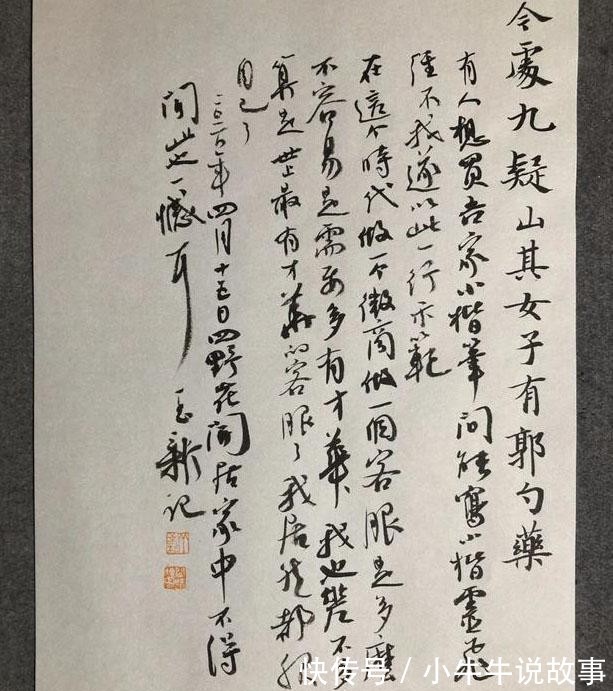 令處九疑山其女子有郭勺藥
有人想買吉家小楷筆問能寫小楷靈飛
經不我遂以此一行示範
在這个時代做一个微商做一個客服是多麼
不容易是需要多有才華我也
算是世上最有才華的客服了我居然都服
自己了
二〇二〇年四月十五日四野花開居家中不得
聞此一憾耳 新記
快传号/小牛牛说故事